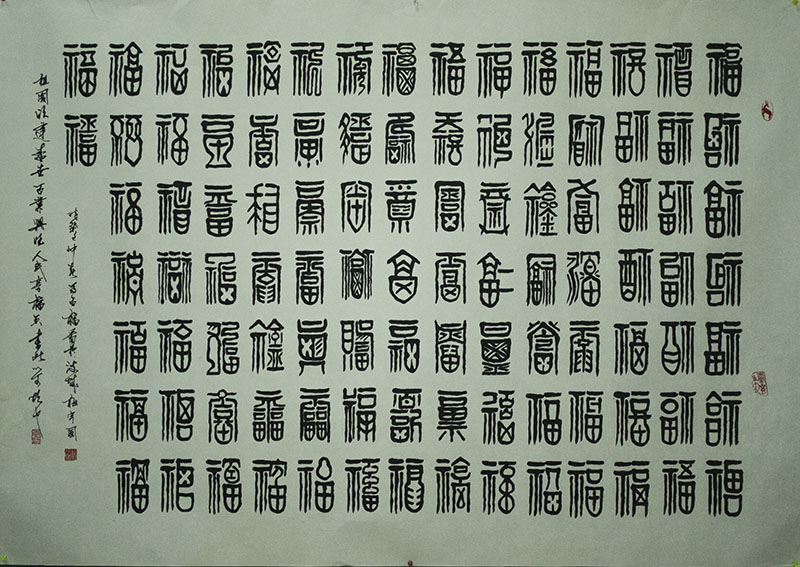 福福福福福福福
福福福福福福福
福福福福福福福
福福福福福福福
福福福福福福福
福福福福福福福
福福福福福福福
福福福福福福福
福福福福福福福
福福福福福福福
福福福福福福福
福福福福福福福
福福福福福福福
福福福福福福福
福福
仲夏百福
祖國百業興旺人民幸福